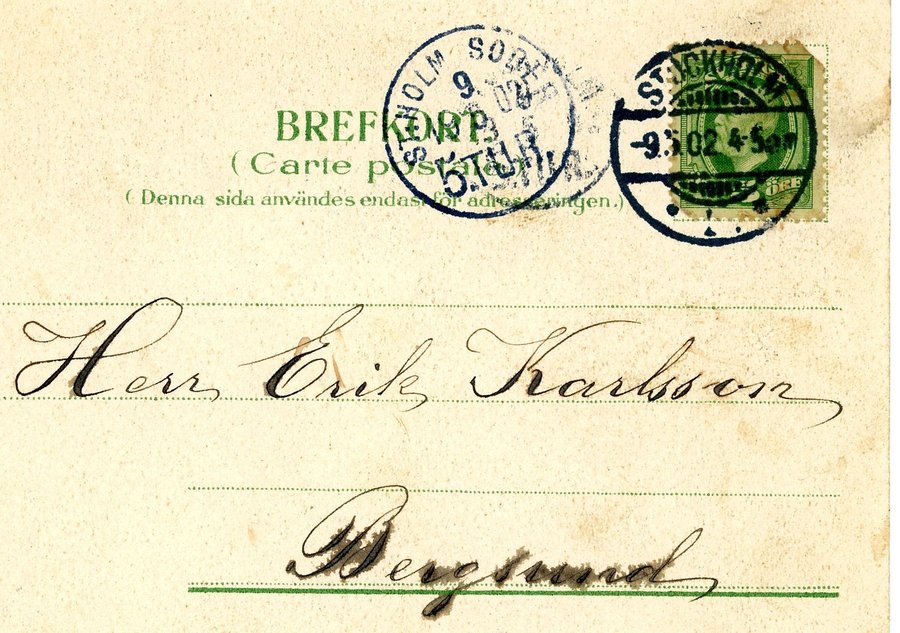 BREFKORT
(Carte postale)
(Denna sida användes endast för adresseringen.)
STHOLM SÖDER
9
5.TUR
STOCKHOLM
-9.5.02 4-5
5 ÖRE
Herr Erik Karlsson
Bergsund